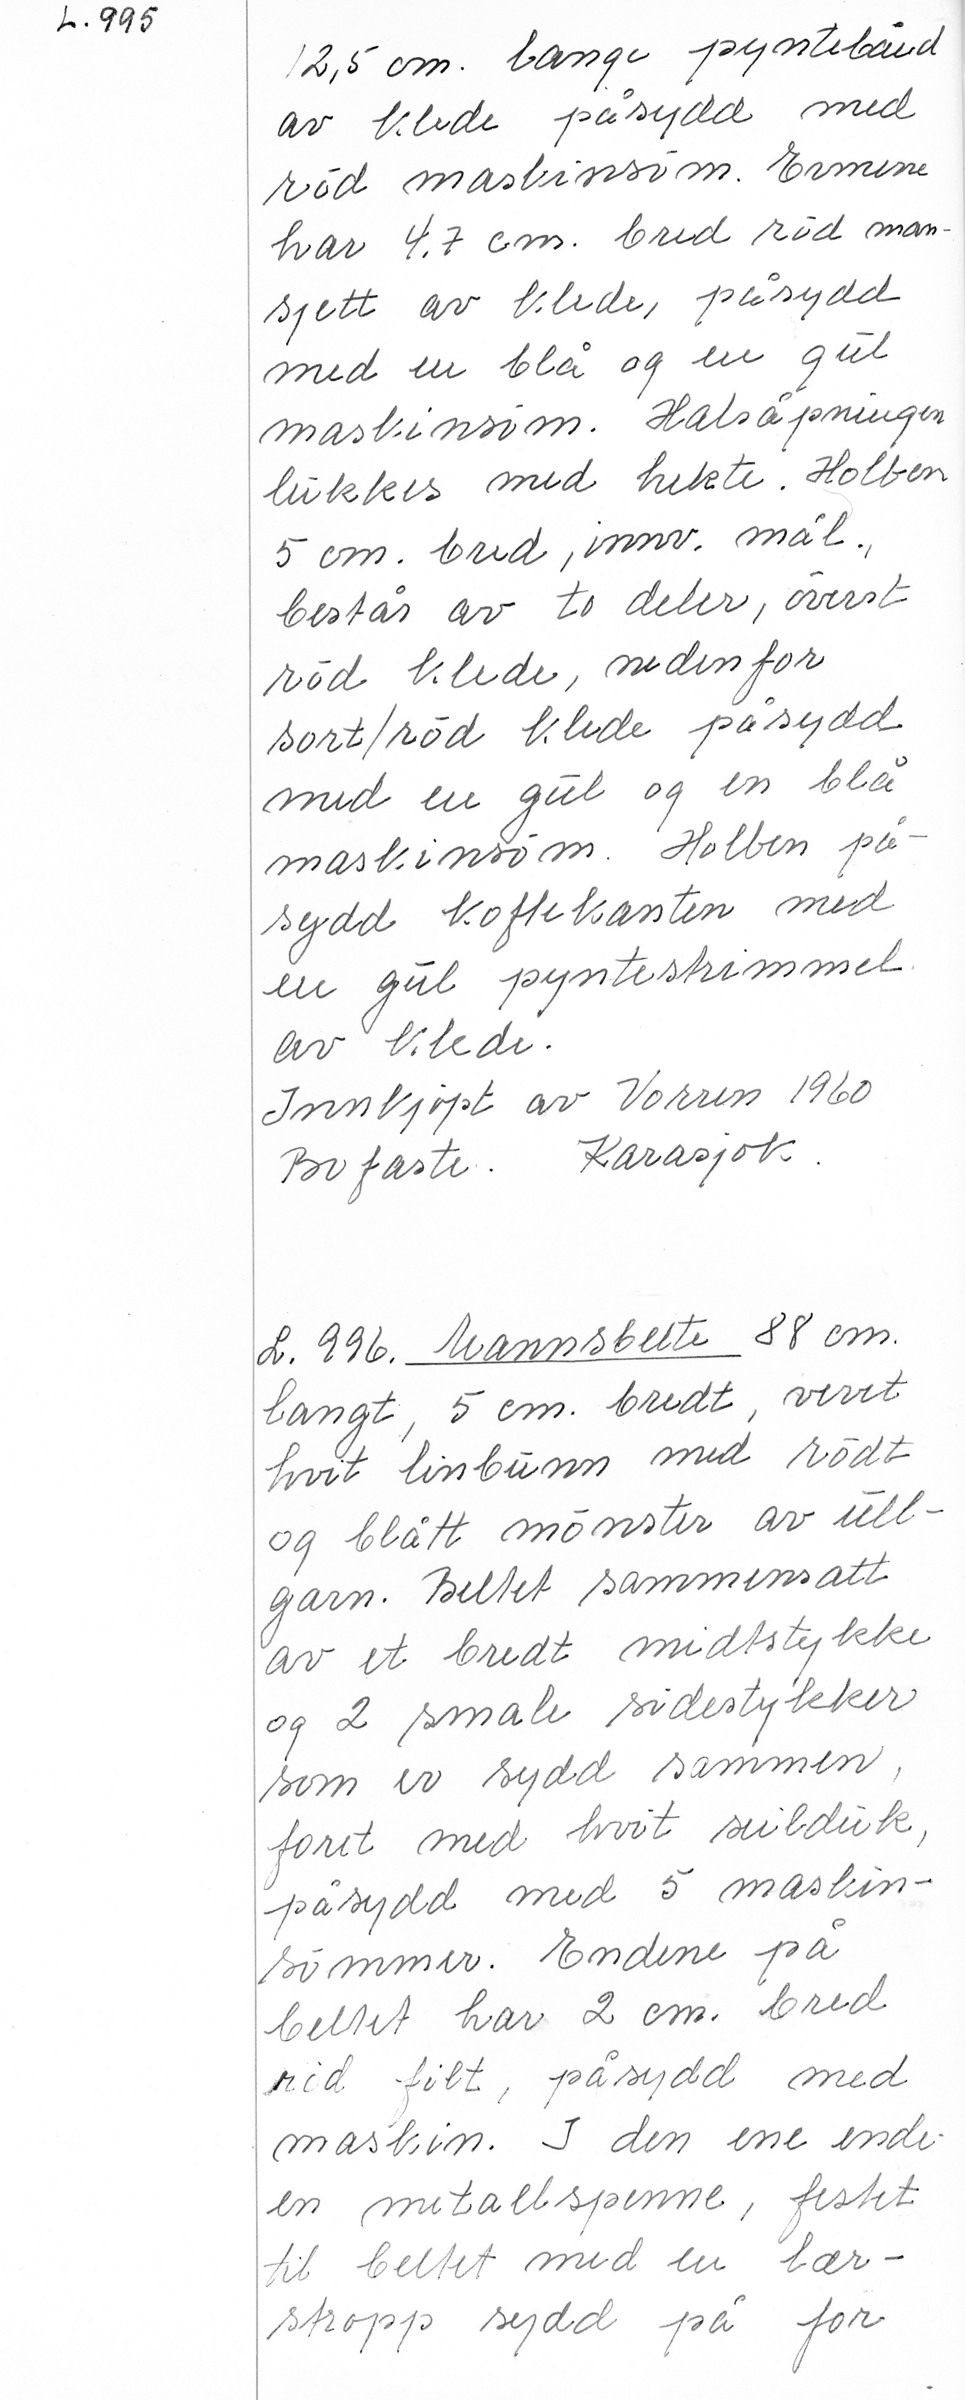 L.995
12,5 cm. lange pyntebånd
av klede påsydd med
röd maskinsöm. Ermene
har 4,7 cm. bred röd man-
sjett av klede, påsydd
med en blå og en gul
maskinsöm. Halsåpningen
lukkes med hekte. Holben
5 cm. bred, innv. mål.,
består av to deler, överst
röd klede, nedenfor
sort/röd klede påsydd
med en gul og en blå
maskinsöm. Holben på-
sydd koftekanten med
en gul pyntestrimmel
av klede.
Innkjöpt av Vorren 1960
Bofaste. Karasjok.
L. 996. Mannsbelte 88 cm.
langt, 5 cm. bredt, vevet
hvit linbunn med rödt
og blått mönster av ull-
garn. Beltet sammensatt
av et bredt midtstykke
og 2 smale sidestykker
som er sydd sammen,
foret med hvit seilduk,
påsydd med 5 maskin-
sömmer. Endene på
beltet har 2 cm. bred
röd filt, påsydd med
maskin. I den ene ende
en metallspenne, festet
til beltet med en lær-
stropp sydd på for